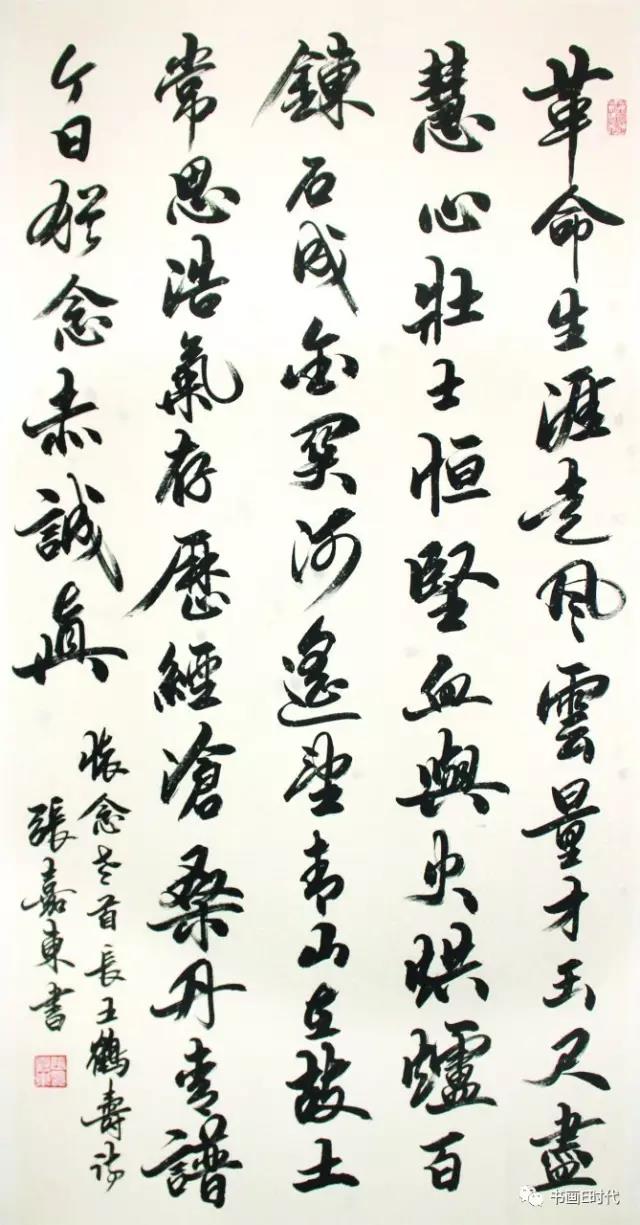 革命生涯走风雲量才玉尺盡
慧心壯士恒堅血與火烘爐百
鍊石成金关河遙望青山在故土
常思浩氣存歷經滄桑丹青譜
今日猶念赤誠真
懷念老首長王鶴壽詩
張嘉東書
书画E时代